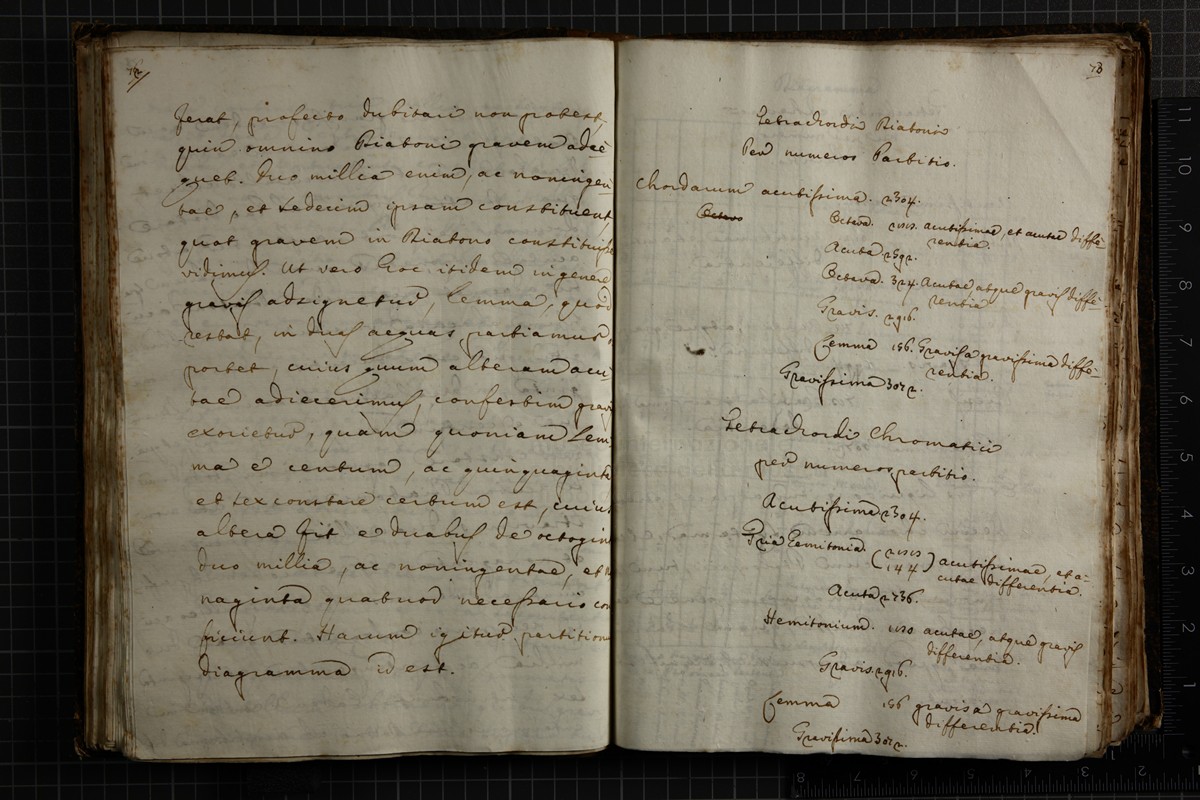 72
ferat, profecto dubitari non potest,
quin omnino Diatoni gravem adae-
quet. Duo millia enim, ac noningen-
tae, et sedecim ipsam constituent,
quot gravem in Diatono constituisse
vidimus. Ut vero hoc itidem in genere
gravis adsignetur, lemma, quod
restat, in duas aequas partiamur o-
portet, cuius quum alteram acu-
tae adiecerimus, confestim gravis
exorietur, quam quoniam lem-
ma e centum, ac quinquaginta
et sex constare certum est, cuius
altera fit e duabus de octoginta
duo millia, ac noningentae, et no-
naginta quatuor necessario con-
ficiunt. Harum igitur partitionum
diagramma id est.
73
Tetrachordi Diatoni
Per numeros Partitio.
Chordarum acutissima. 2304.
Octava. acutissimae, et acutae diffe-
rentia.
Acuta 2592.
Octava. 324. Acutae atque gravis diffe-
rentia
Gravis. 2916.
Lemma 156. Gravis a gravissima diffe-
rentia.
Gravissima 3072.
Tetrachordi Chromatici
per numeros partitio.
Acutissima 2304.
Tria hemitonia. acutissimae, et a-
144 cutae differentia.
Acuta 2736.
Hemitonium. 180 acutae, atque gravis
differentia.
Gravis 2916.
Lemma 156 gravis a gravissima
differentia.
Gravissima 3072.